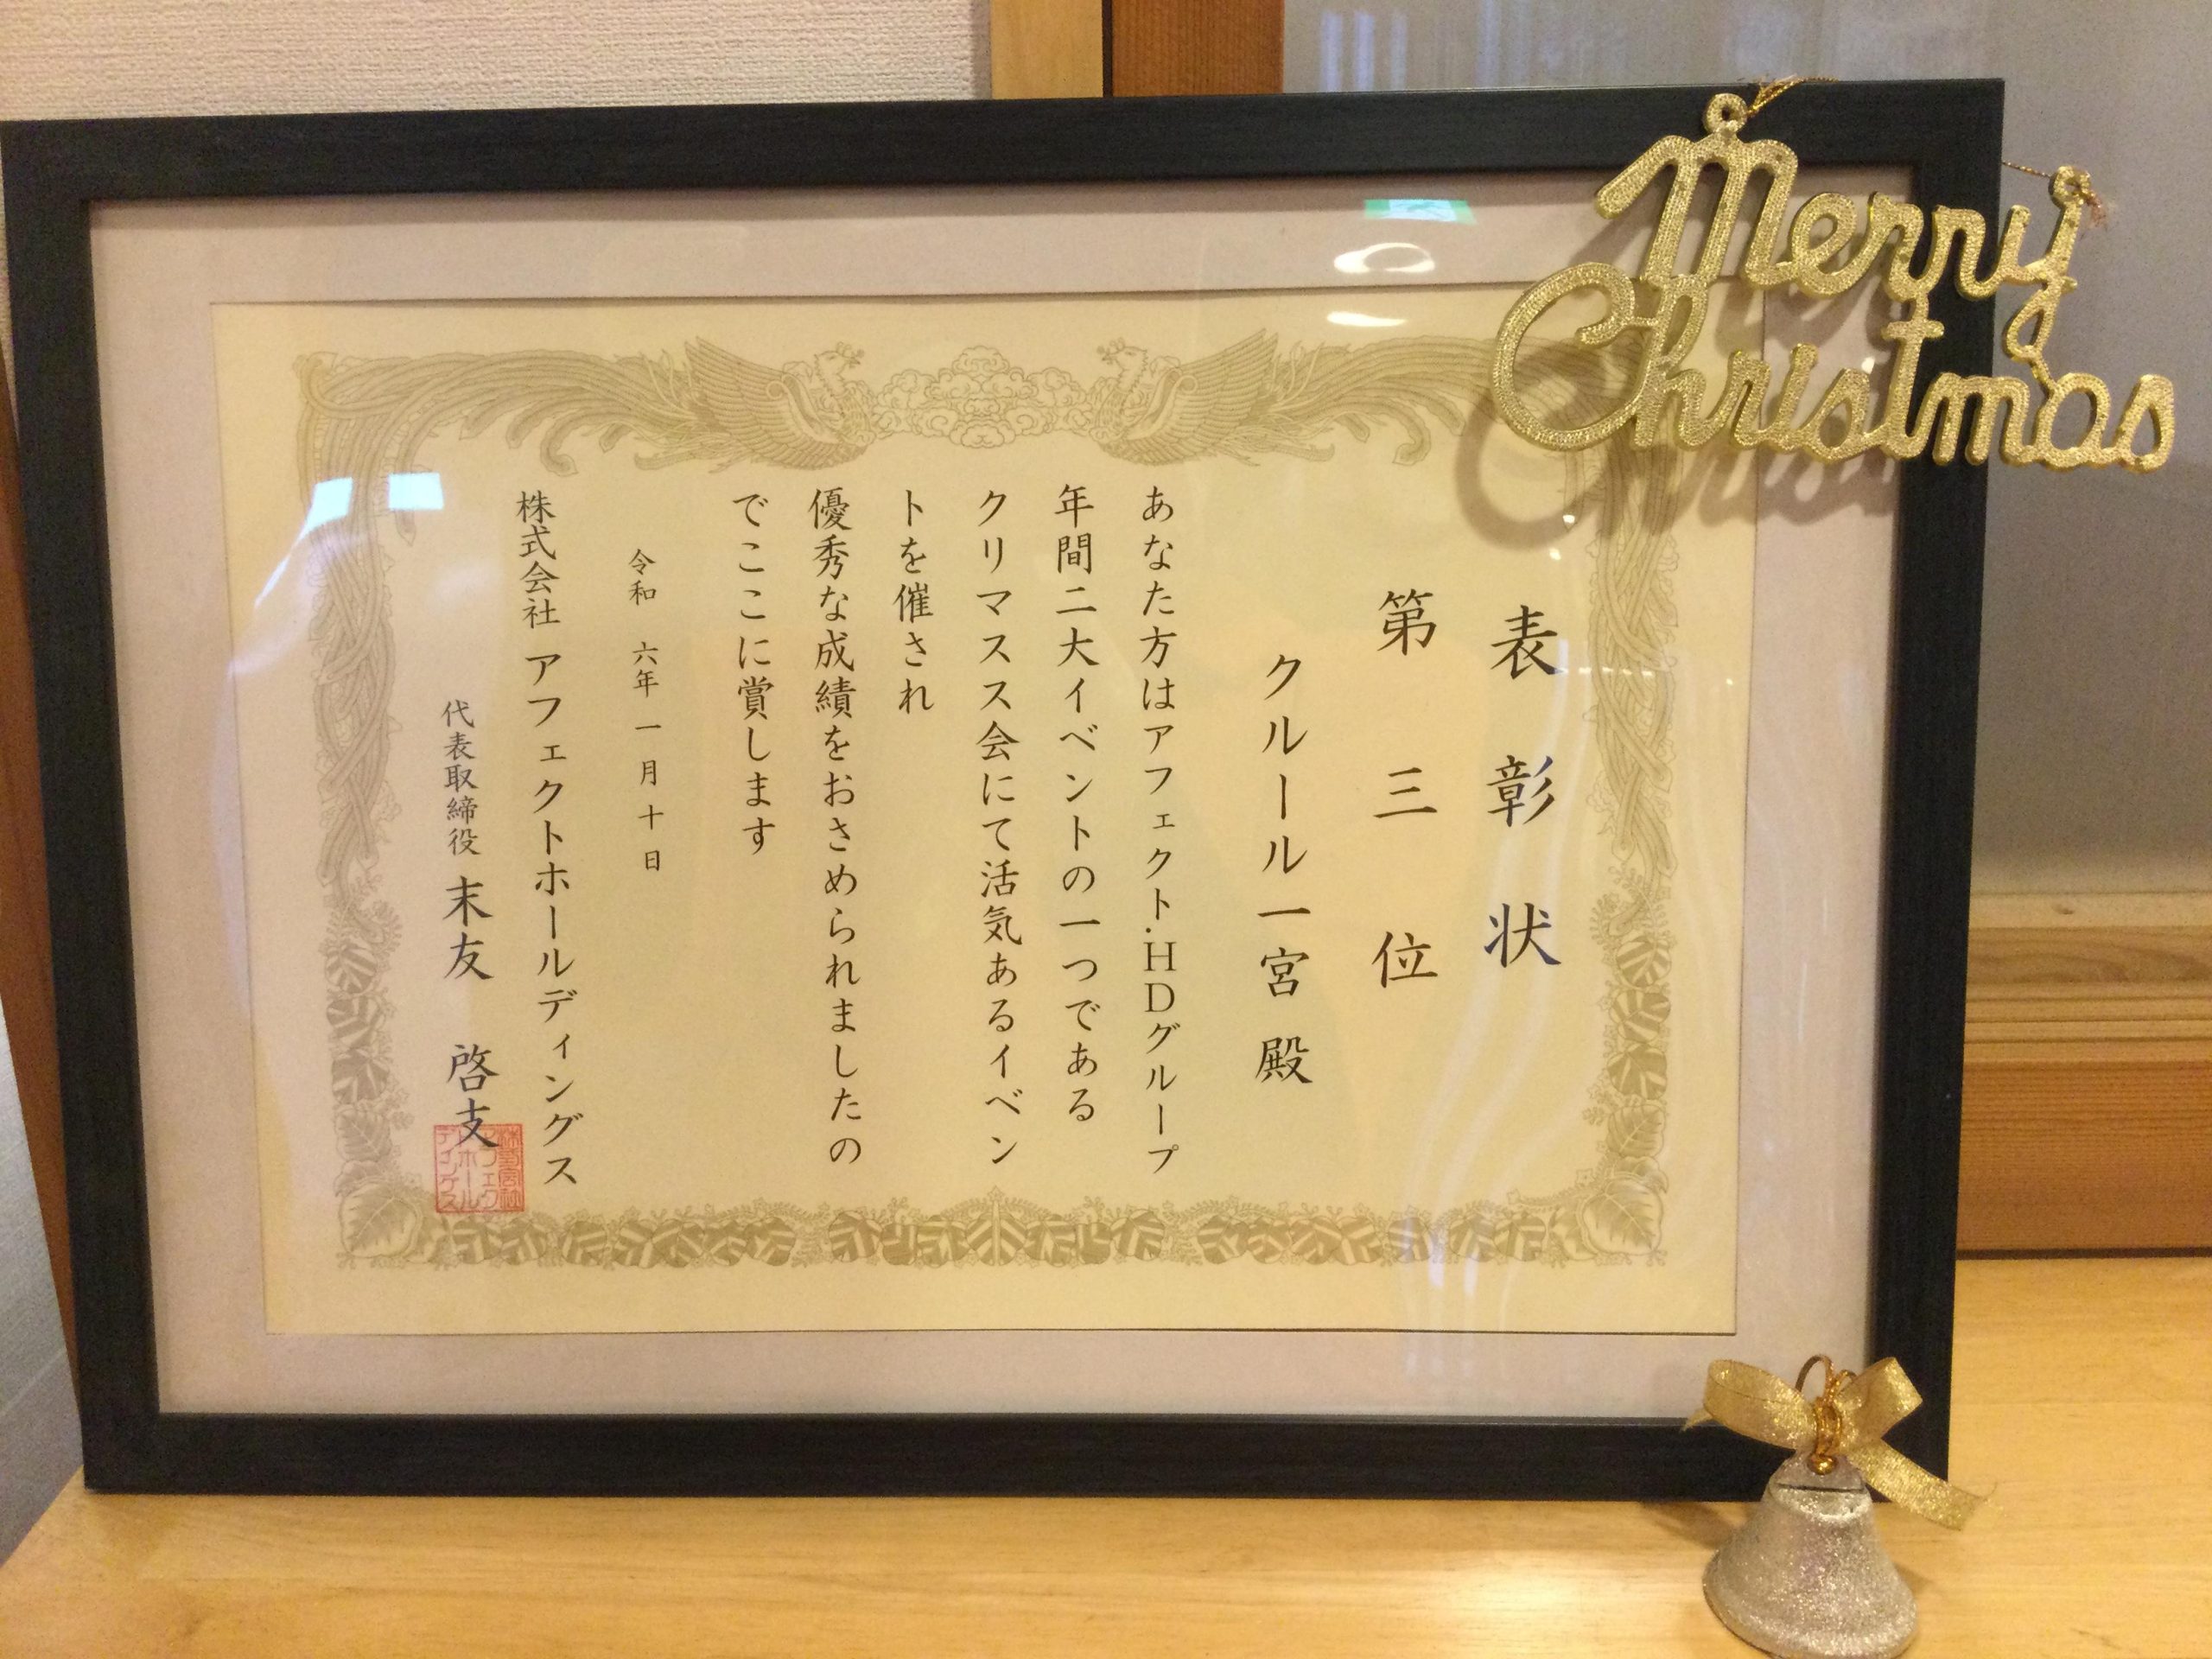 表彰状
第三位
クルール一宮 殿
あなた方はアフェクト.HDグループ
年間二大イベントの一つである
クリマスス会にて活気あるイベン
トを催され
優秀な成績をおさめられましたの
でここに賞します
令和 六年 一月十日
株式会社 アフェクトホールディングス
代表取締役 末友 啓支
株式会社
アフェクト
ホール
ディングス
Merry
Christmas